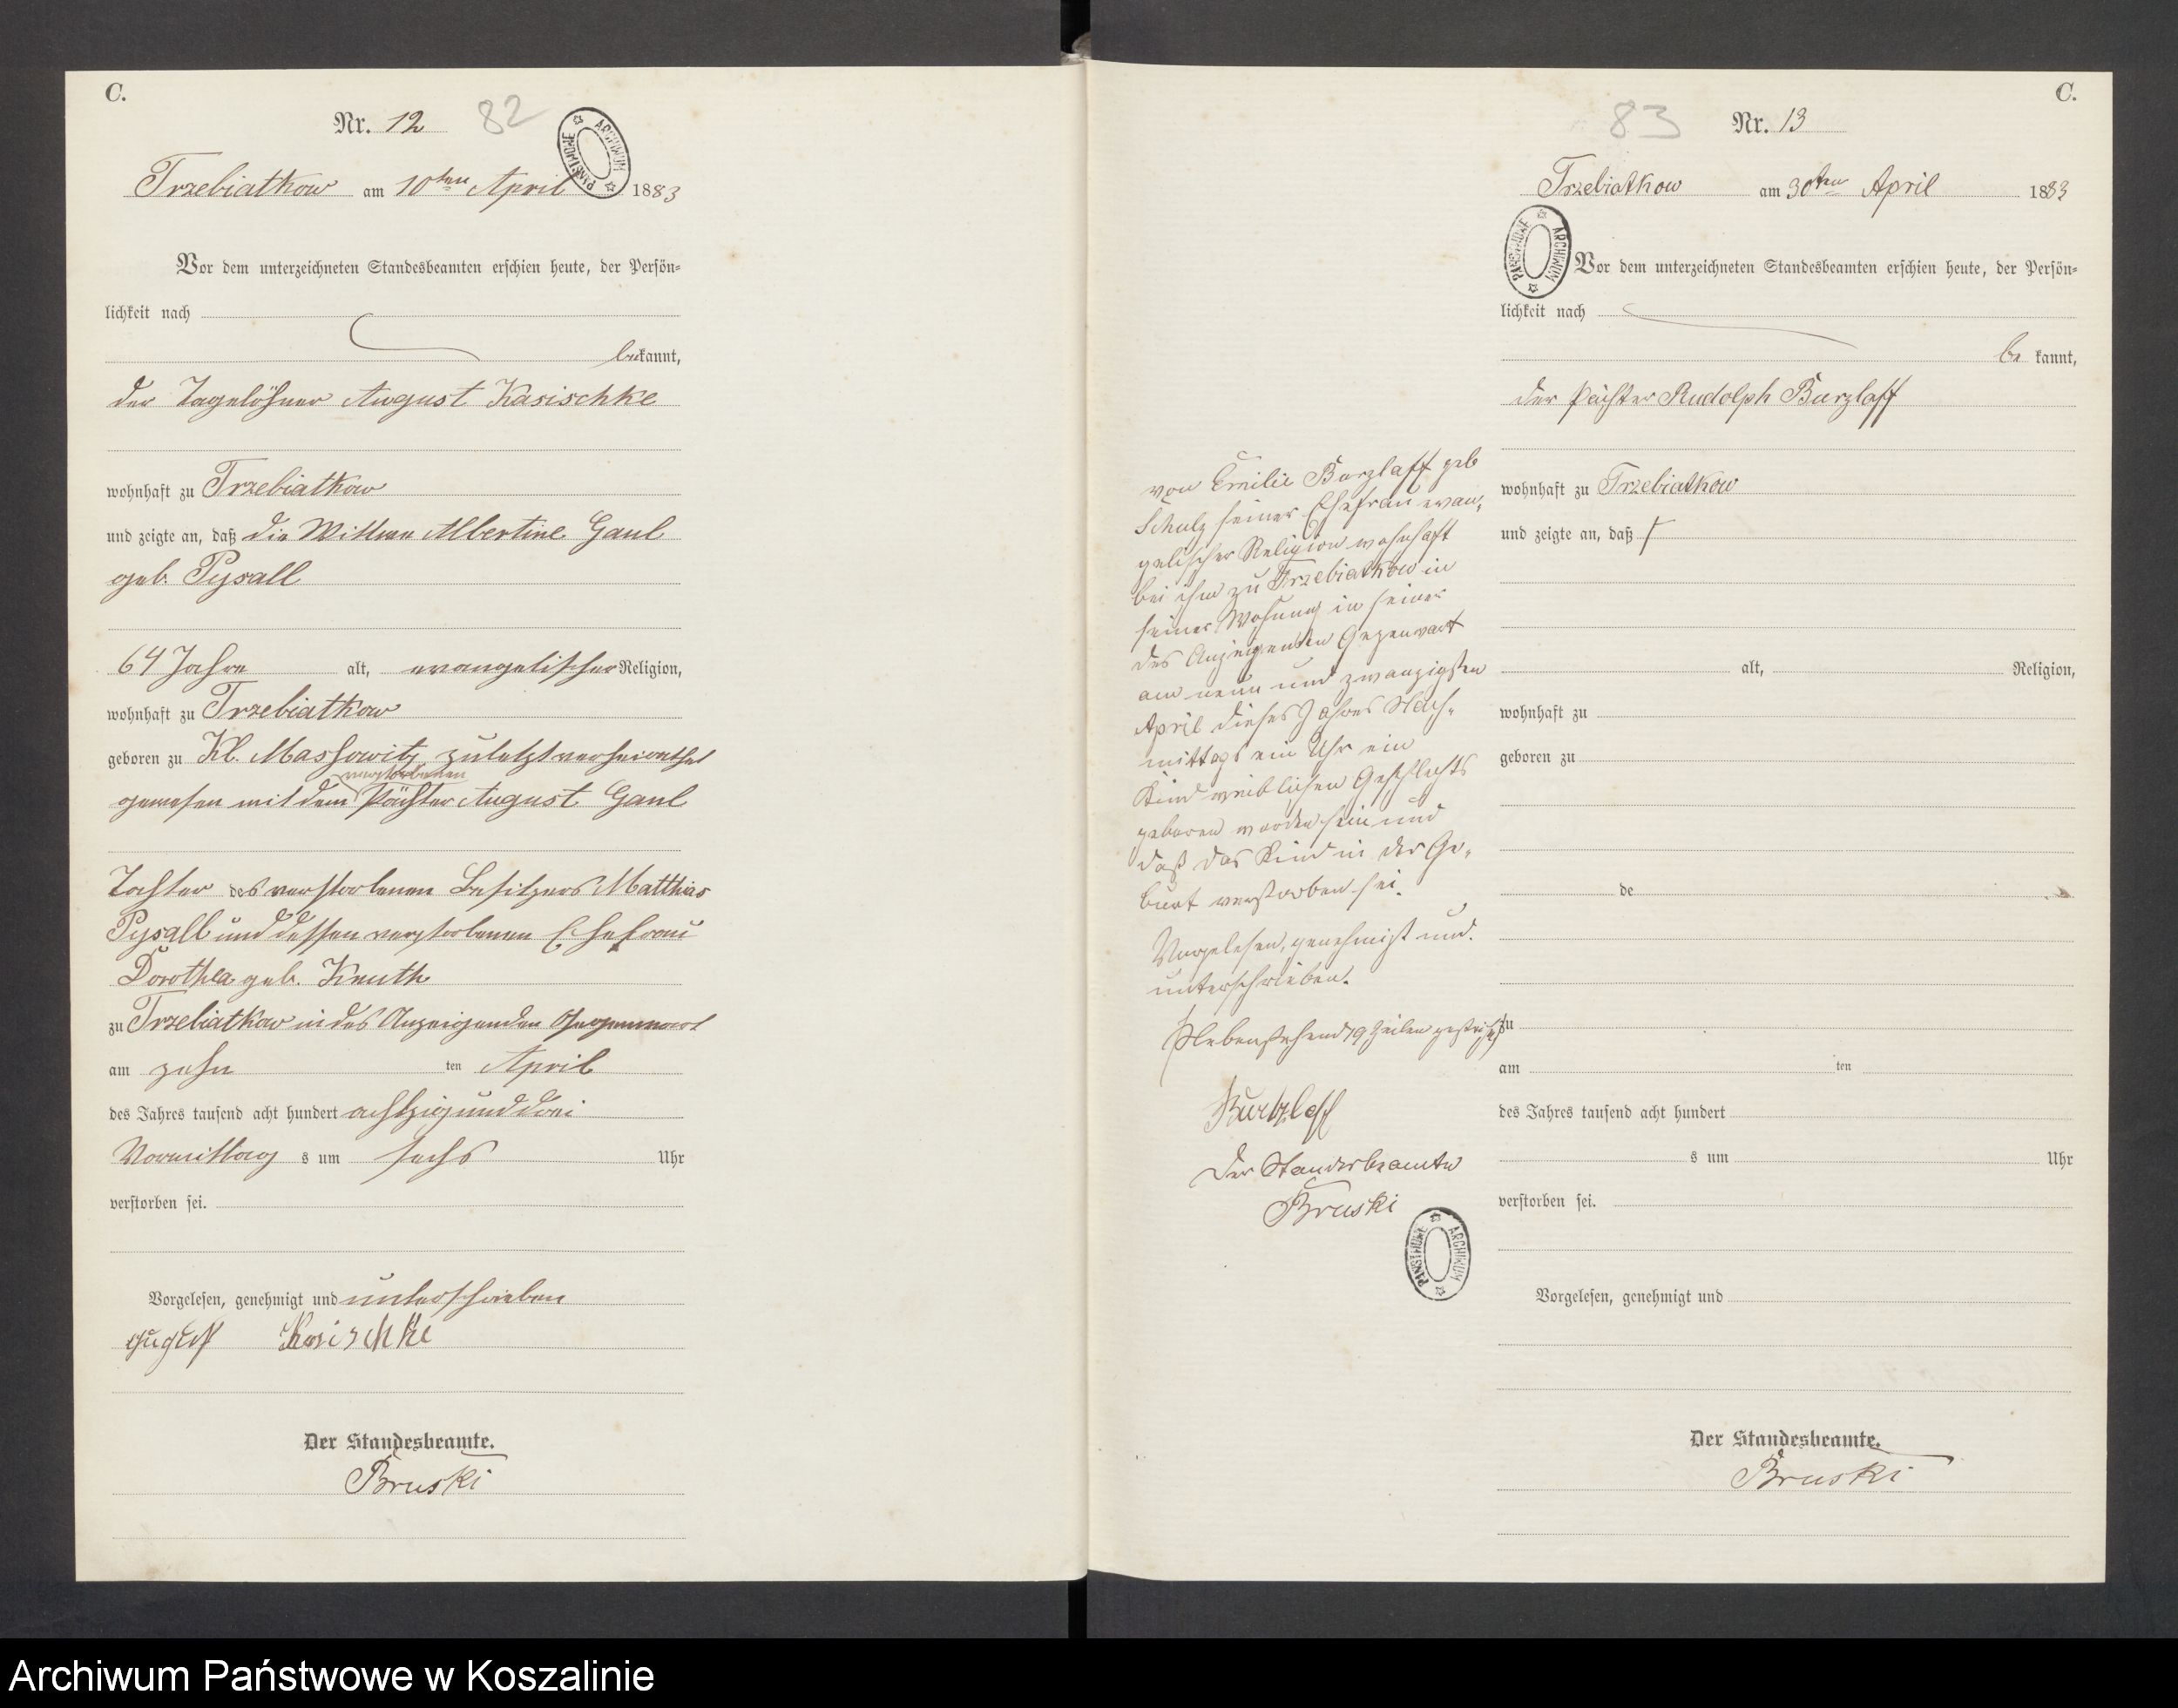 C.
Nr. 12 82
PAŃSTWOWE ARCHIWUM
Trzebiatkow am 10ten April 1883
Vor dem unterzeichneten Standesbeamten erschien heute, der Persön-
lichkeit nach
bekannt,
der Tagelöhner August Kasischke
wohnhaft zu Trzebiatkow
und zeigte an, daß die Wittwe Albertine Gaul
geb. Pysall
64 Jahre alt, evangelischer Religion,
wohnhaft zu Trzebiatkow
geboren zu Kl. Massowitz zuletzt verheirathet
verstorbenen
gewesen mit dem Pächter August Gaul
Tochter des verstorbenen Besitzers Matthias
Pysall und dessen verstorbenen Ehefrau
Dorothea geb. Knuth
zu Trzebiatkow in des Anzeigenden Gegenwart
am zehn ten April
des Jahres tausend acht hundert achtzig und drei
Vormittag s um sechs Uhr
verstorben sei.
Vorgelesen, genehmigt und unterschrieben
August Kasischke
Der Standesbeamte.
Bruski
C.
83 Nr. 13
Trzebiatkow am 30ten April 1883
PAŃSTWOWE ARCHIWUM
Vor dem unterzeichneten Standesbeamten erschien heute, der Persön-
lichkeit nach
be kannt,
der Pächter Rudolph Burzlaff
wohnhaft zu Trzebiatkow
und zeigte an, daß
alt, Religion,
wohnhaft zu
geboren zu
de
zu
am ten
des Jahres tausend acht hundert
s um Uhr
verstorben sei.
Vorgelesen, genehmigt und
Der Standesbeamte.
Bruski
von Emilie Burzlaff geb
Schulz seiner Ehefrau evan-
gelischer Religion wohnhaft
bei ihm zu Trzebiatkow in
seiner Wohnung in seiner
des Anzeigenden Gegenwart
am neun und zwanzigsten
April dieses Jahres Nach-
mittags ein Uhr ein
Kind weiblichen Geschlechts
geboren worden sei und
daß das Kind in der Ge-
burt verstorben sei.
Vorgelesen, genehmigt und
unterschrieben.
Nebenstehend 19 Zeilen gestrichen
Burtzlaff
Der Standesbeamte
Bruski
PAŃSTWOWE ARCHIWUM
Archiwum Państwowe w Koszalinie